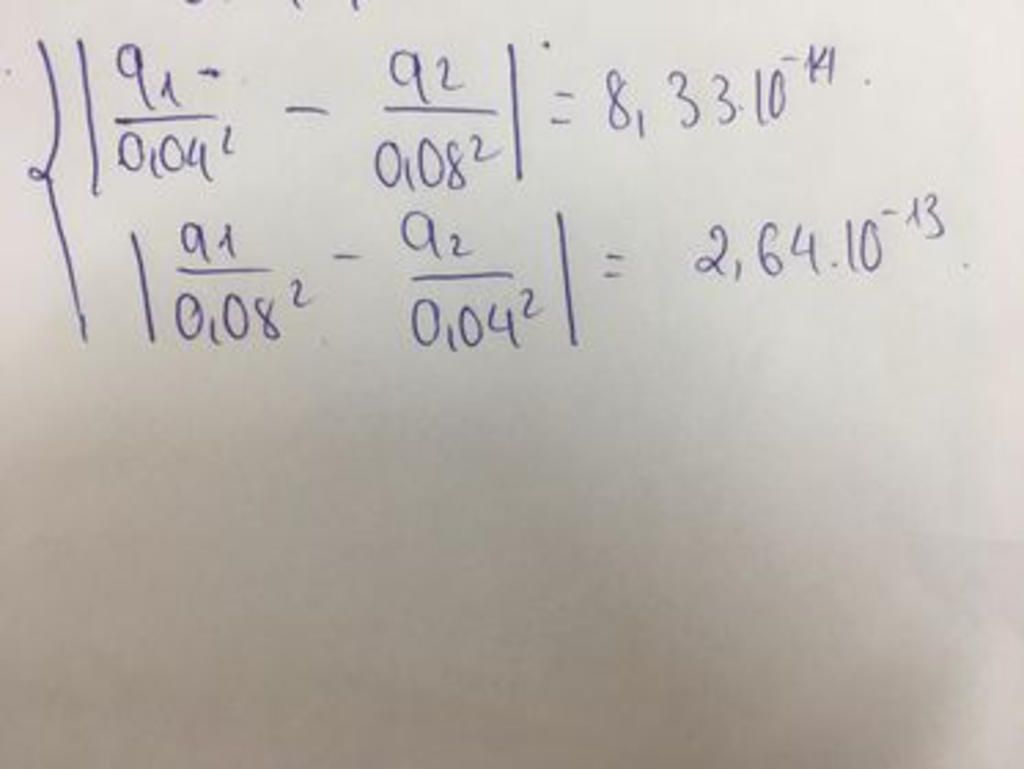 { | q1 / 0,04² - q2 / 0,08² | = 8,33.10^-14
| q1 / 0,08² - q2 / 0,04² | = 2,64.10^-13